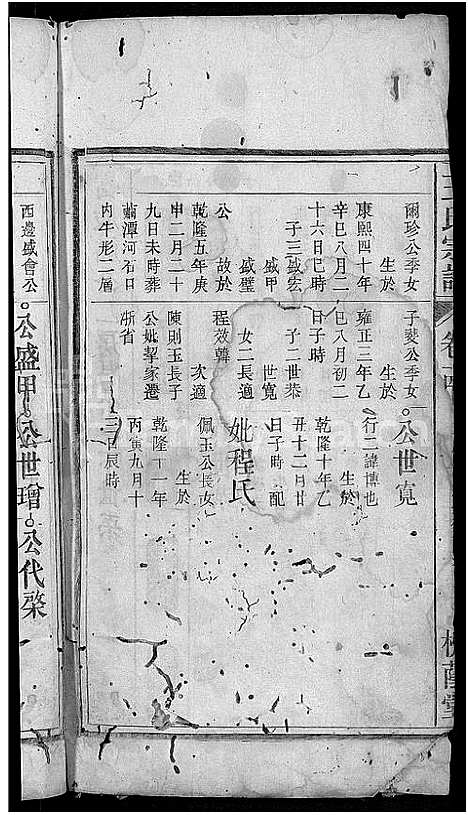 王氏宗譜
卷十四
槐蔭堂
爾珍公季女
生於
康熙四十年
辛巳八月二
十六日巳時
子三盛宏
盛甲
盛璧
公 故於
乾隆五年庚
申二月二十
九日未時葬
繭潭河石口
內牛形二層
子燮公季女
生於
雍正三年乙
巳八月初二
日子時
子二世恭
世寬
女二長適
程效韓
次適
陳則玉長子
公妣挈家遷
浙省
公世寬
行二諱博也
生於
乾隆十年乙
丑十二月廿
日子時 配
妣程氏
佩玉公長女
生於
乾隆十一年
丙寅九月十
三日辰時
西邊盛會公
公盛甲
公世璔
公代棨